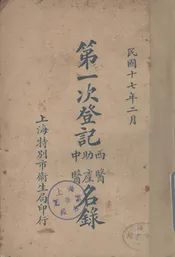 民國十七年二月
第一次登記
西醫
助產
中醫
名錄
上海特別市衛生局印行